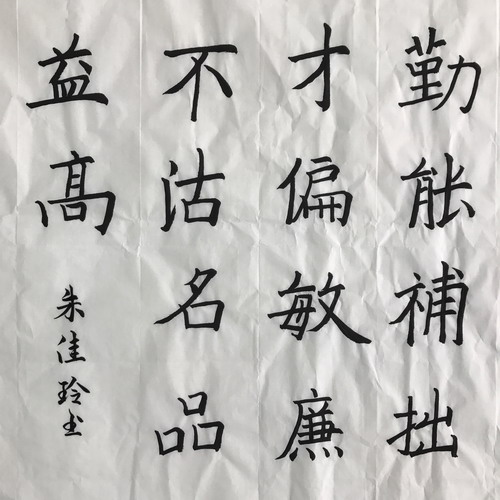 勤能補拙
才偏敏廉
不沽名品
益高
朱佳玲书